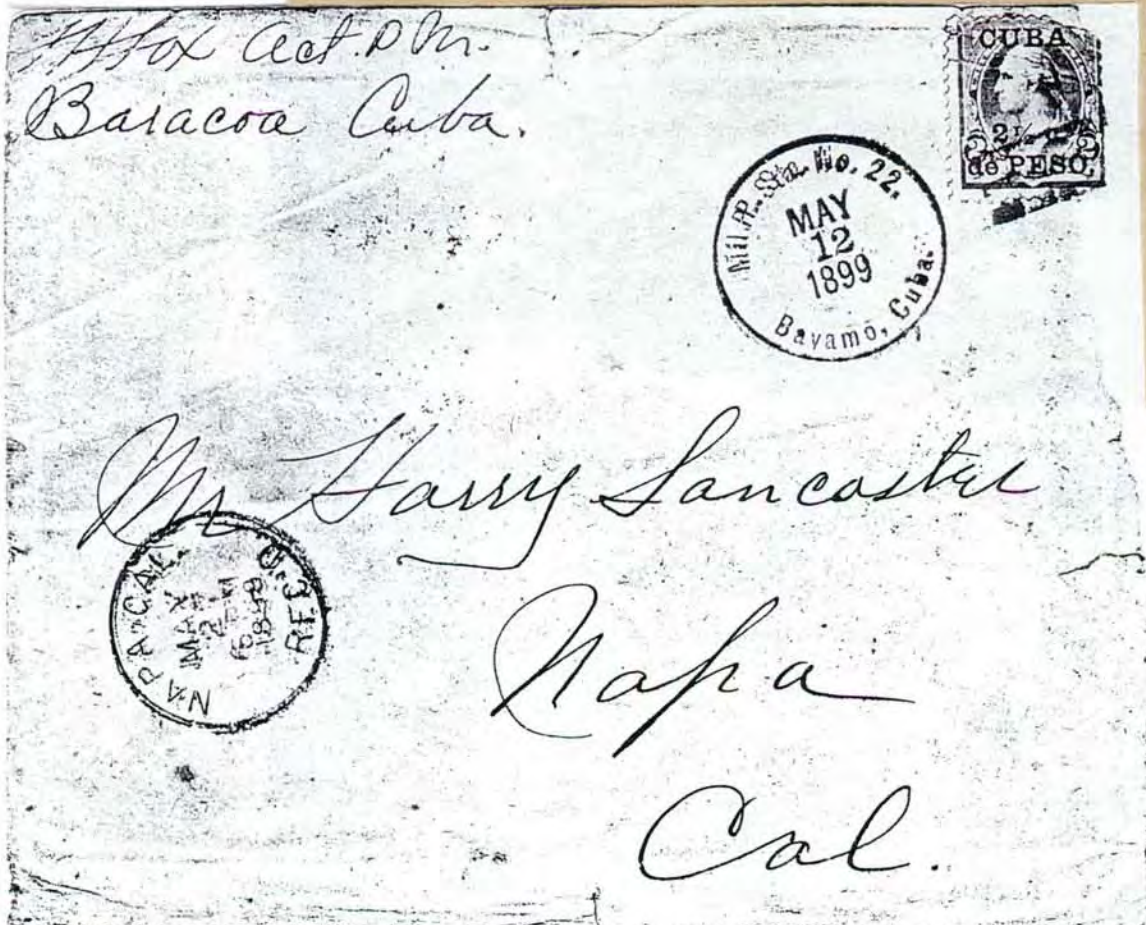 Fox Act. P M.
Baracoa Cuba.
CUBA
2½ c.
de PESO.
2 2
Mil. P. Sta. No. 22.
MAY
12
1899
Bayamo, Cuba.
Mr Harry Lancaster
Napa
Cal.
NAPA-CAL.
MAY
1899
REC'D.